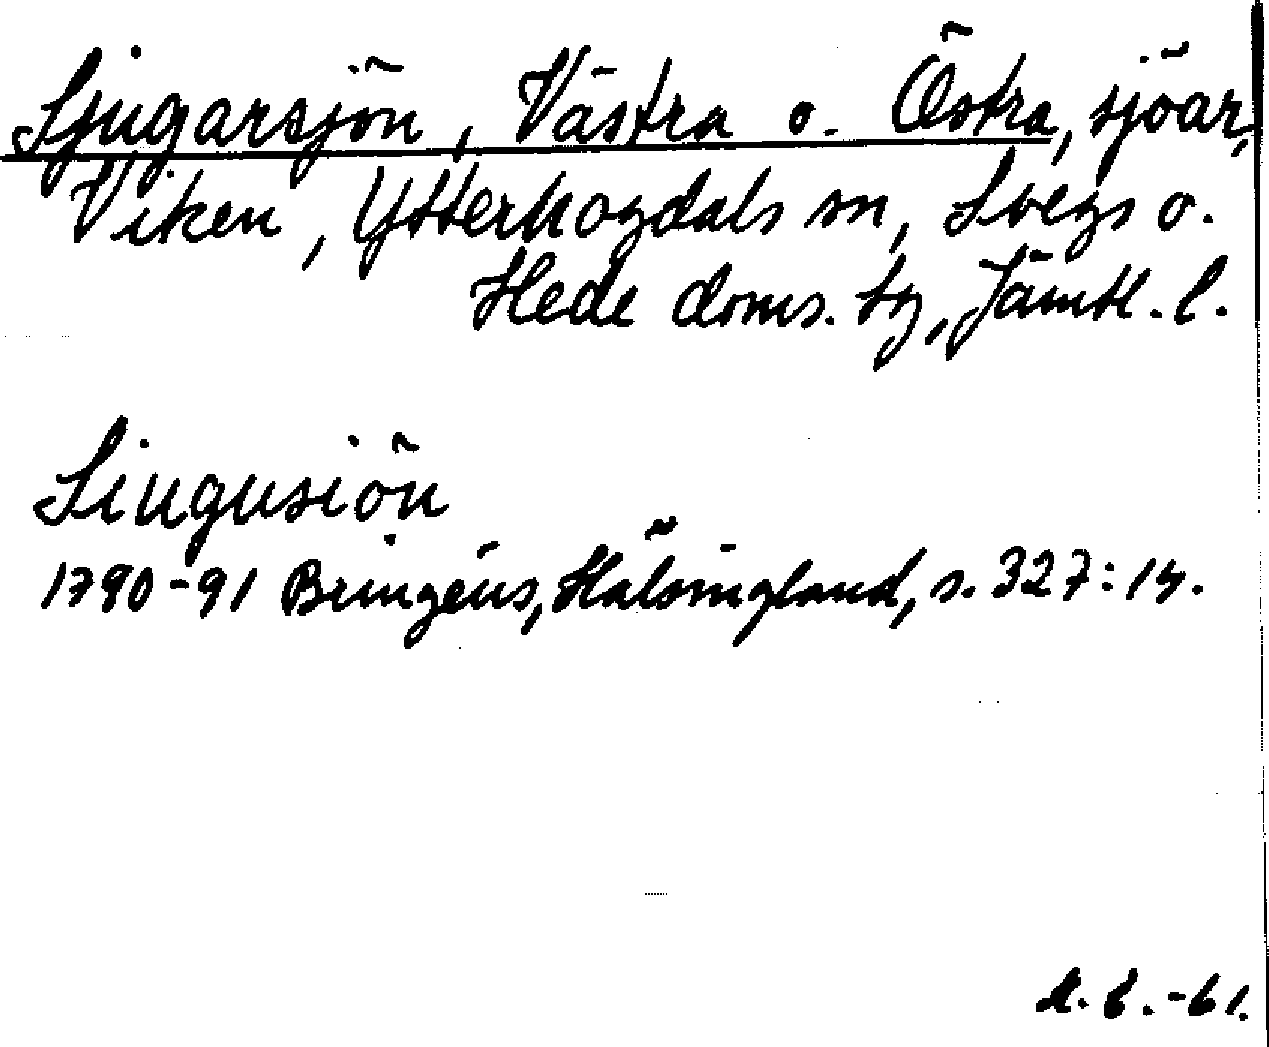 Sjugarsjön, Västra o. Östra, sjöar,
Viken, Ytterhogdals sn, Svegs o.
Hede doms. tg, Jämtl. l.
Siugusiön
1790-91 Bringéus, Hälsingland, s. 327:14.